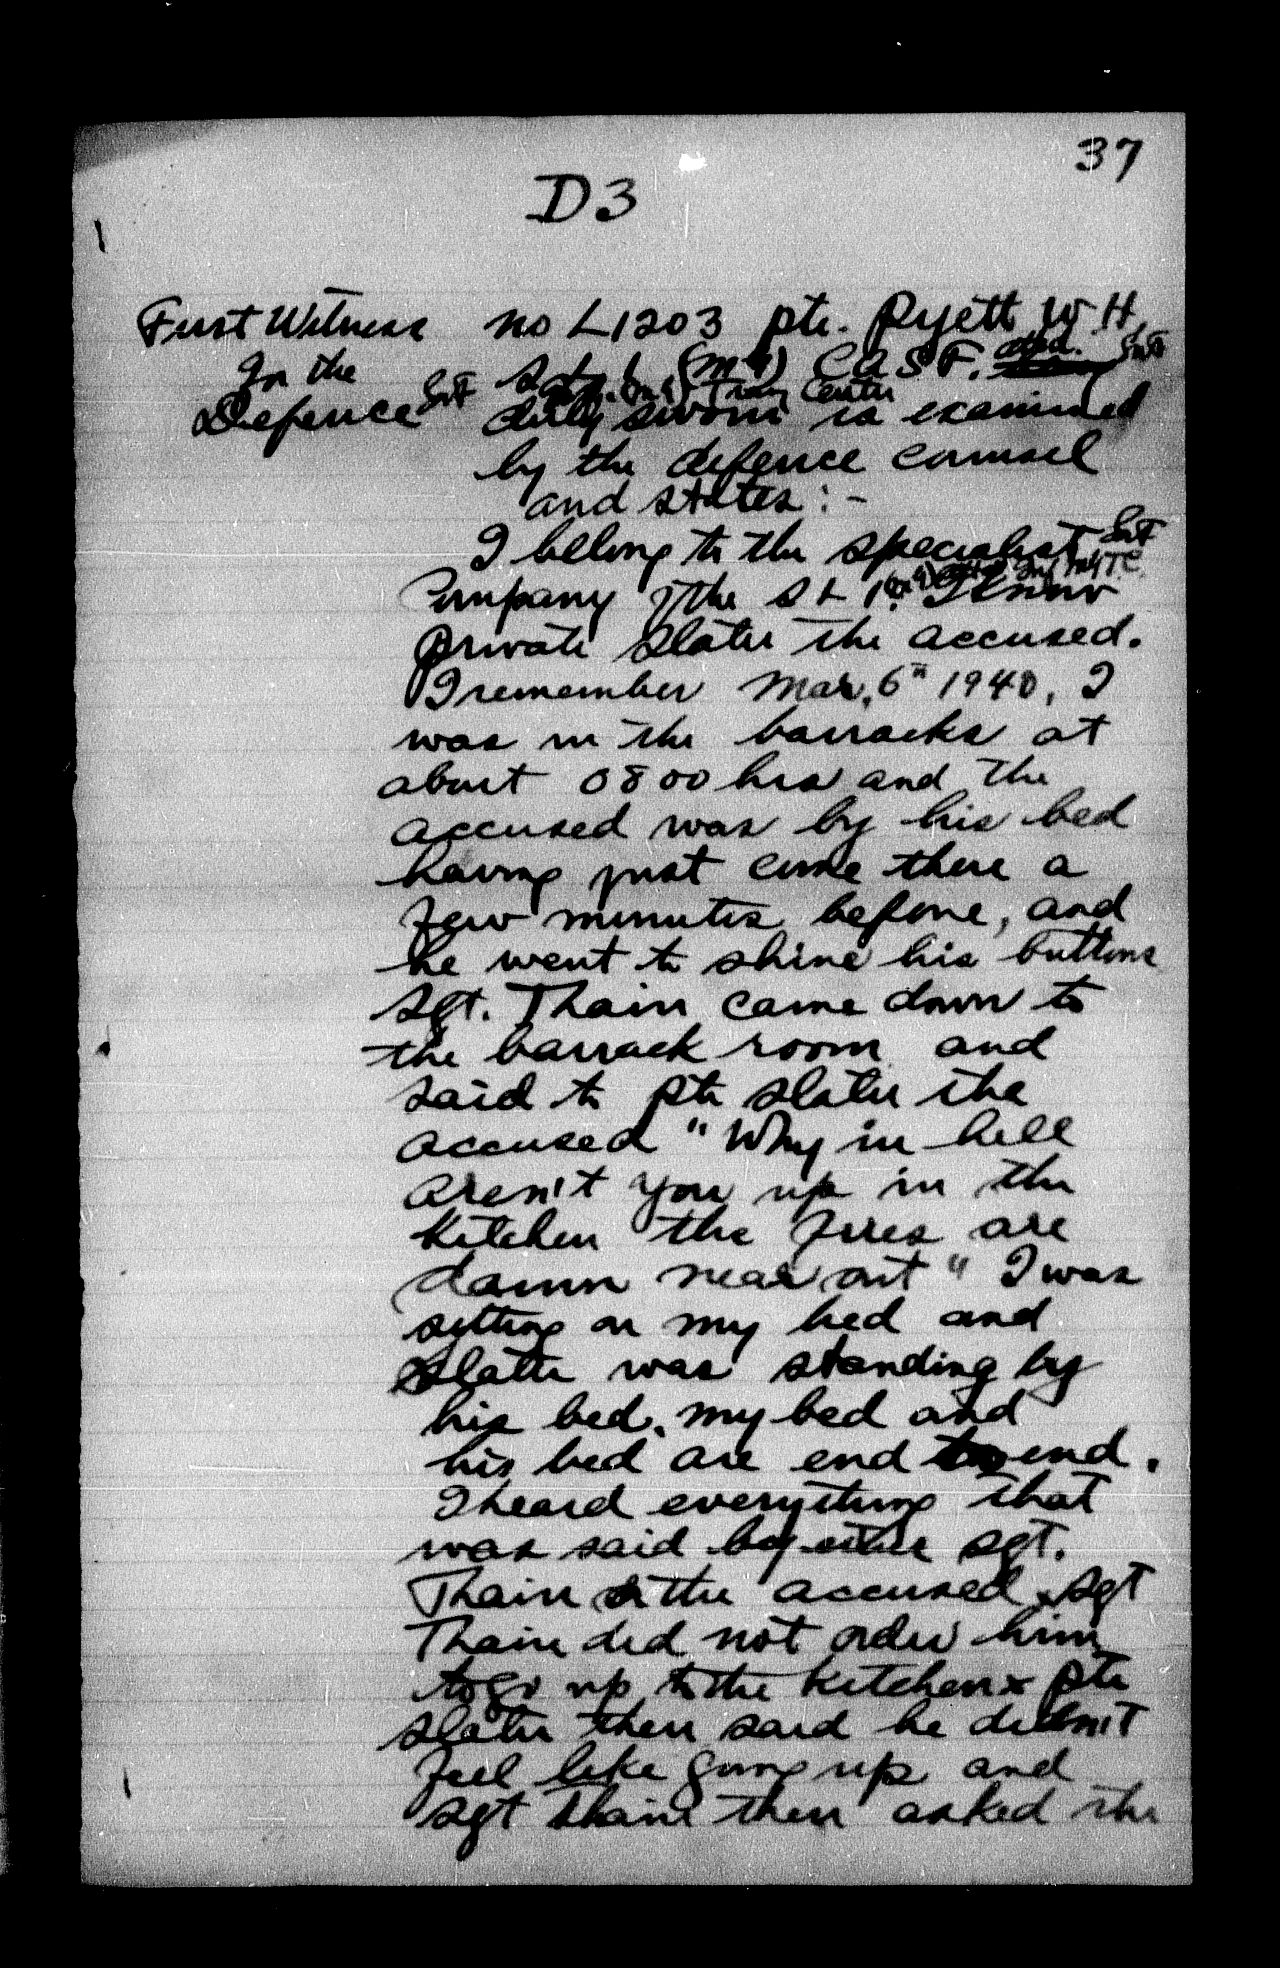 37
D3
First Witness no L1203 pte. Pyett W.H.
for the S.L.I. (M.G.) C.A.S.F. attd.
Defence Trng Centre
duly sworn is examined
by the defence counsel
and states :-
I belong to the specialist
Company of the S L I. (M.G.) I know
private Slater the accused.
I remember Mar. 6th 1940, I
was in the barracks at
about 0800 hrs and the
accused was by his bed
having just come there a
few minutes before, and
he went to shine his buttons
Sgt. Thain came down to
the barrack room and
said to pte Slater the
accused "Why in hell
aren't you up in the
kitchen the fires are
damn near out" I was
sitting on my bed and
Slater was standing by
his bed. my bed and
his bed are end to end.
I heard everything that
was said by either Sgt.
Thain or the accused x Sgt
Thain did not order him
to go up to the kitchen x pte
Slater then said he didn't
feel like going up and
Sgt Thain then asked the